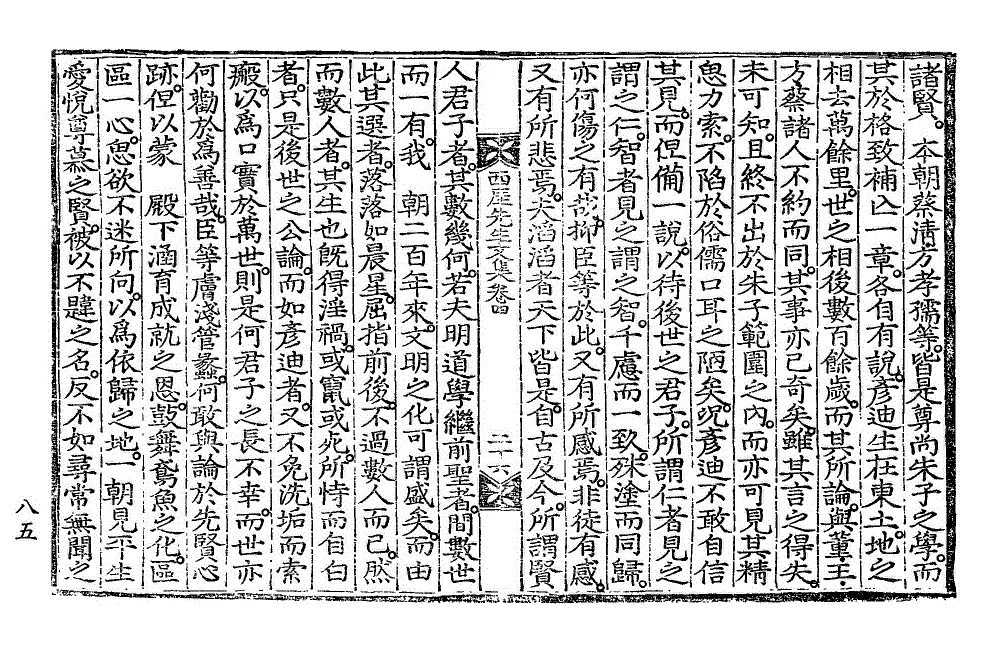 諸賢。本朝蔡淸方孝孺等。皆是尊尙朱子之學。而
其於格致補亡一章。各自有說。彥迪生在東土。地之
相去萬餘里。世之相後數百餘歲。而其所論。與董王·
方蔡諸人不約而同。其事亦已奇矣。雖其言之得失。
未可知。且終不出於朱子範圍之內。而亦可見其精
思力索。不陷於俗儒口耳之陋矣。况彥迪不敢自信
其見。而但備一說。以待後世之君子。所謂仁者見之
謂之仁。智者見之謂之智。千慮而一致。殊塗而同歸。
亦何傷之有哉。抑臣等於此。又有所感焉。非徒有感。
又有所悲焉。夫滔滔者天下皆是。自古及今。所謂賢
西厓先生文集卷四
二十六
人君子者。其數幾何。若夫明道學繼前聖者。間數世
而一有。我 朝二百年來。文明之化可謂盛矣。而由
此其選者。落落如晨星。屈指前後。不過數人而已。然
而數人者。其生也旣得淫禍。或竄或死。所恃而自白
者。只是後世之公論。而如彥迪者。又不免洗垢而索
瘢。以爲口實於萬世。則是何君子之長不幸。而世亦
何勸於爲善哉。臣等膚淺管蠡。何敢與論於先賢心
跡。但以蒙 殿下涵育成就之恩。鼓舞鳶魚之化。區
區一心。思欲不迷所向。以爲依歸之地。一朝見平生
愛悅尊慕之賢。被以不韙之名。反不如尋常無聞之
八五